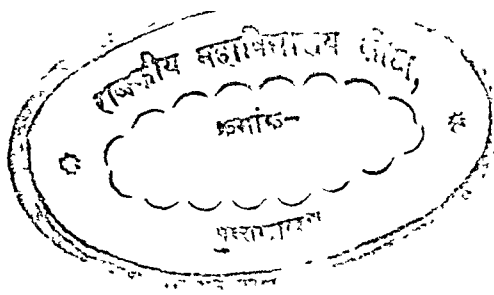 राजकीय महाविद्यालय कोटा,
क्रमांक-
पुस्तकालय